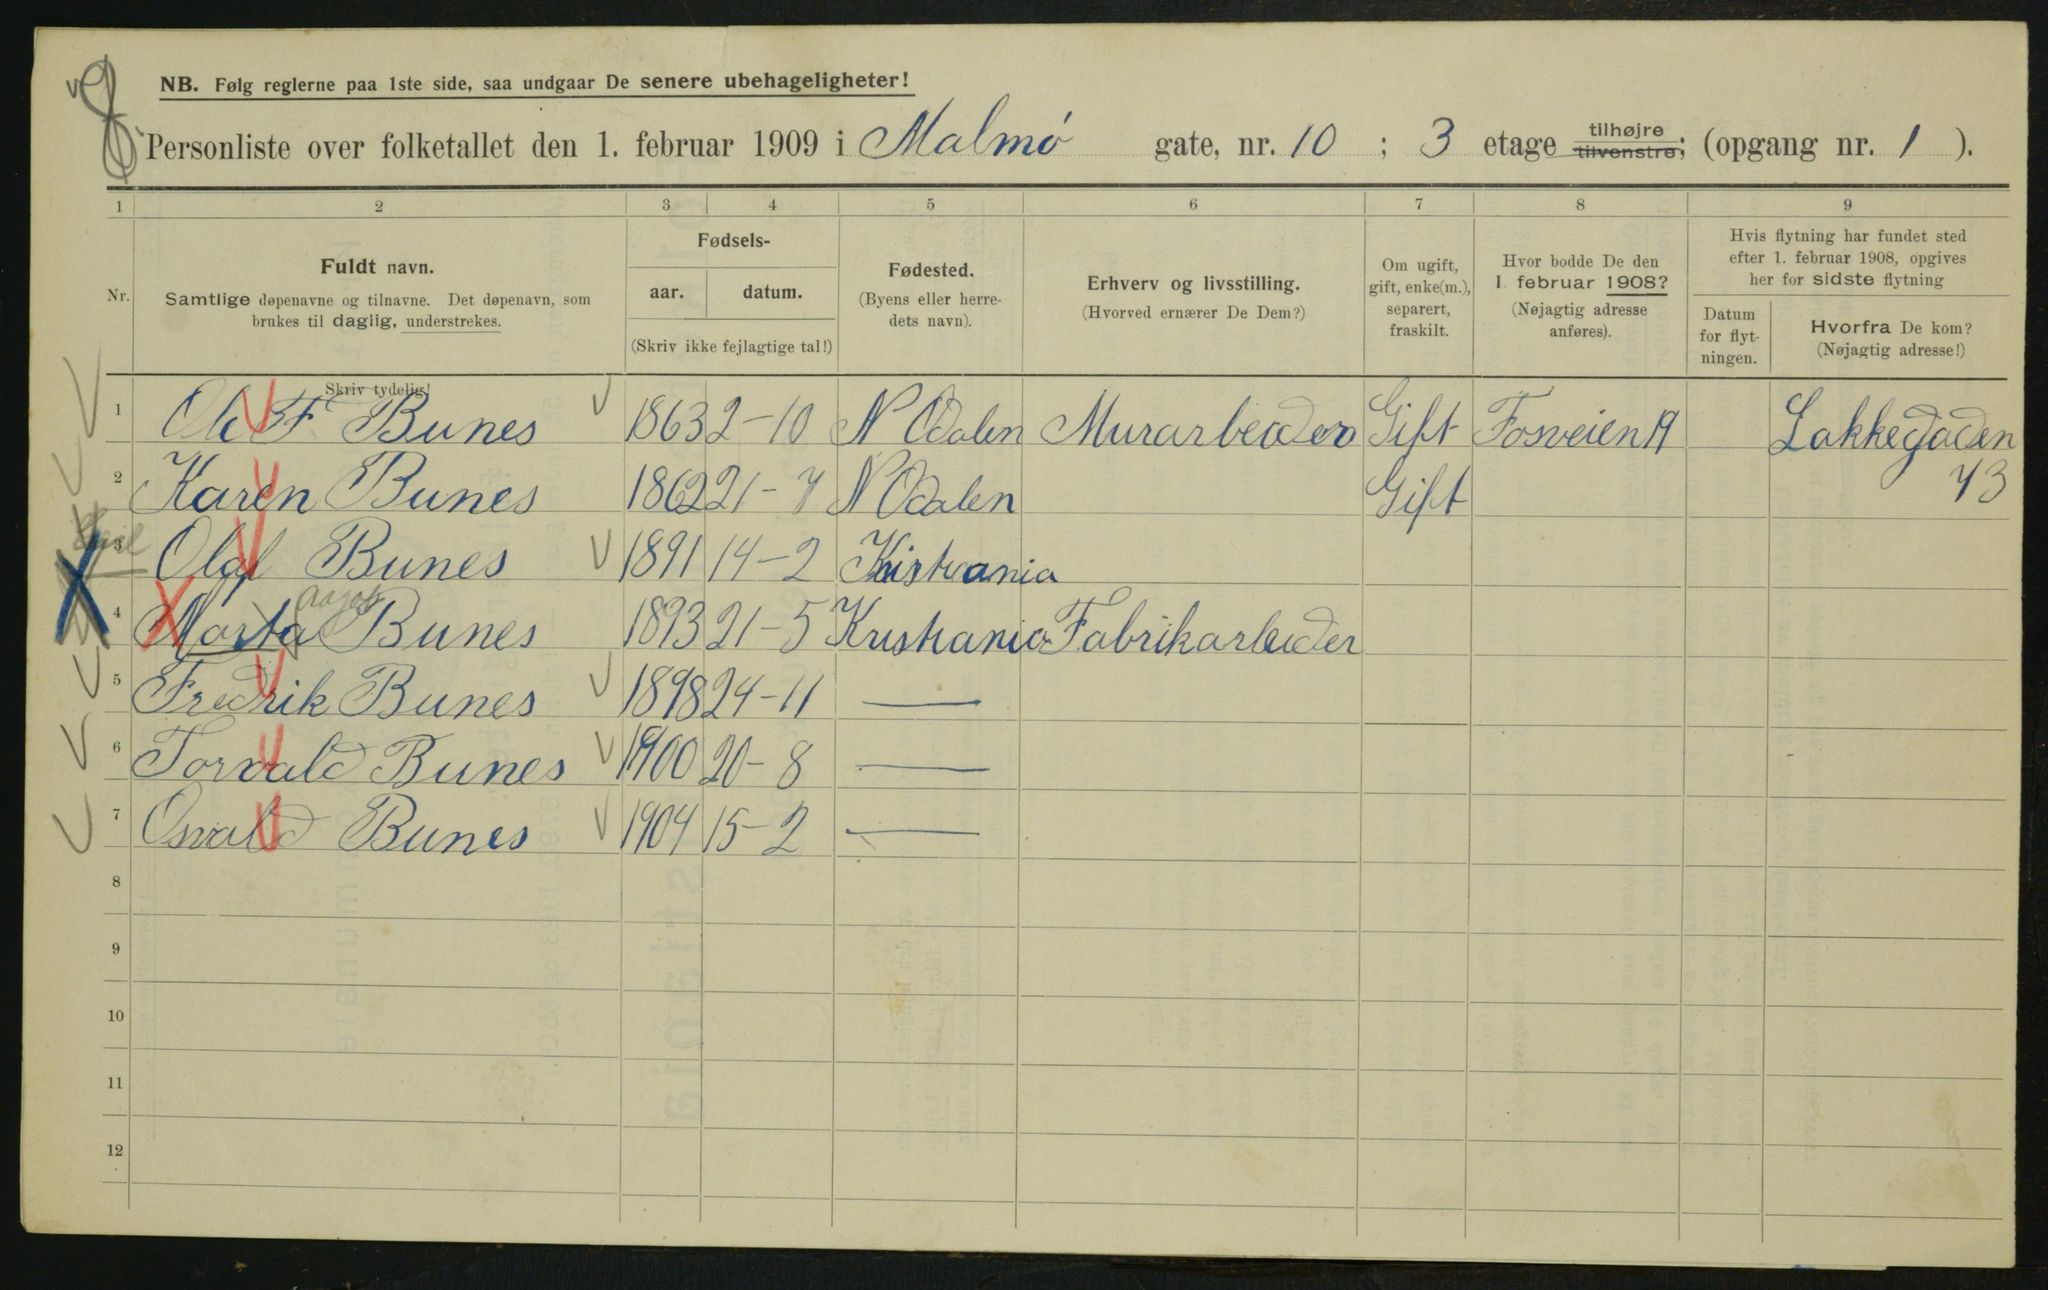 NB. Følg reglerne paa 1ste side, saa undgaar De senere ubehageligheter!
Personliste over folketallet den 1. februar 1909 i Malmø gate, nr. 10 ; 3 etage tilhøjre tilvenstre; (opgang nr. 1 ).
1 2 3 4 5 6 7 8 9
Nr.
Fuldt navn.
Samtlige døpenavne og tilnavne. Det døpenavn, som
brukes til daglig, understrekes.
Skriv tydelig!
Fødsels-
aar. datum.
(Skriv ikke fejlagtige tal!)
Fødested.
(Byens eller herre-
dets navn).
Erhverv og livsstilling.
(Hvorved ernærer De Dem?)
Om ugift,
gift, enke(m.),
separert,
fraskilt.
Hvor bodde De den
1 februar 1908?
(Nøjagtig adresse
anføres).
Hvis flytning har fundet sted
efter 1. februar 1908, opgives
her for sidste flytning
Datum
for flyt-
ningen.
Hvorfra De kom?
(Nøjagtig adresse!)
1 Ole F Bunes 1863 2-10 N Odalen Murarbeider Gift Fosveien 19 Lakkegaden
2 Karen Bunes 1862 21-7 N Odalen Gift 73
3 Olaf Bunes 1891 14-2 Kristiania
4 Marta Bunes 1893 21-5 Kristiania Fabrikarbeider
5 Fredrik Bunes 1898 24-11 —
6 Torvald Bunes 1900 20-8 —
7 Osvald Bunes 1904 15-2 —
8
9
10
11
12